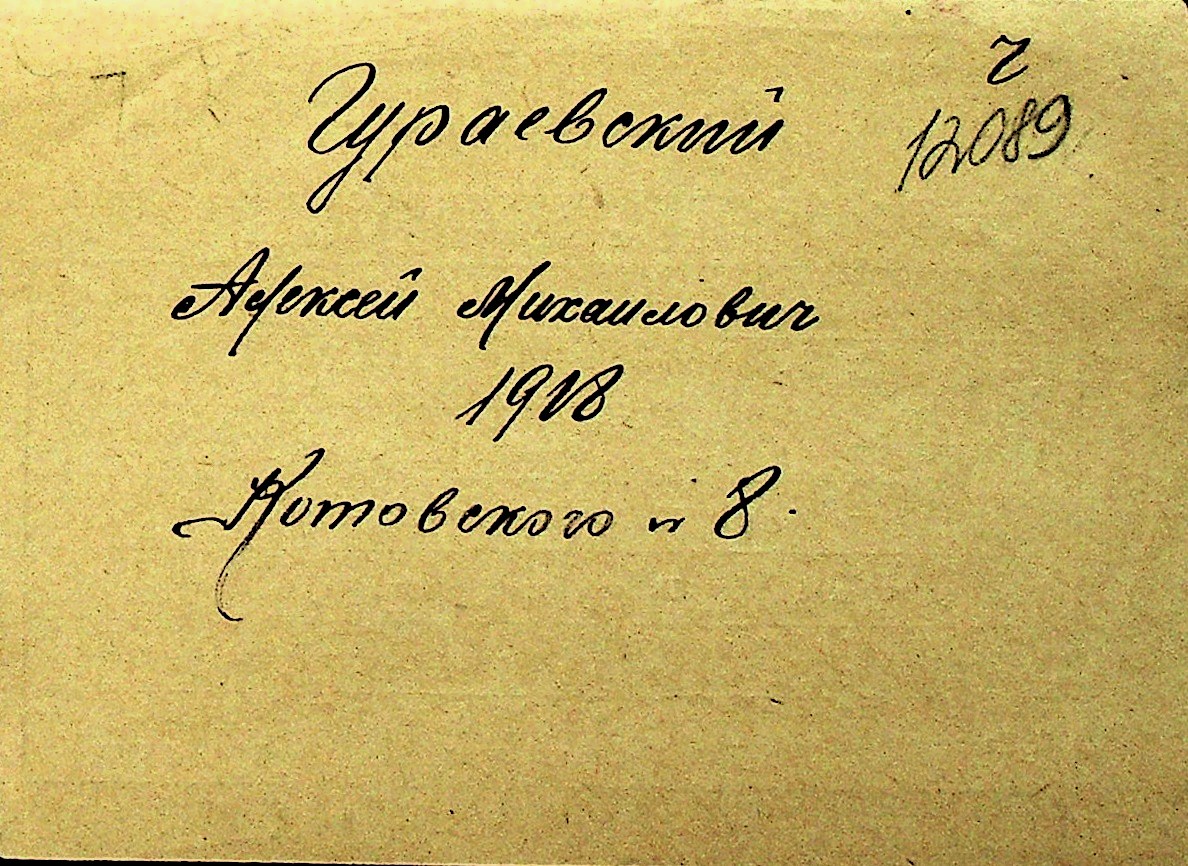 г
12089
Гураевский
Алексей Михаилович
1918
Котовского 8.